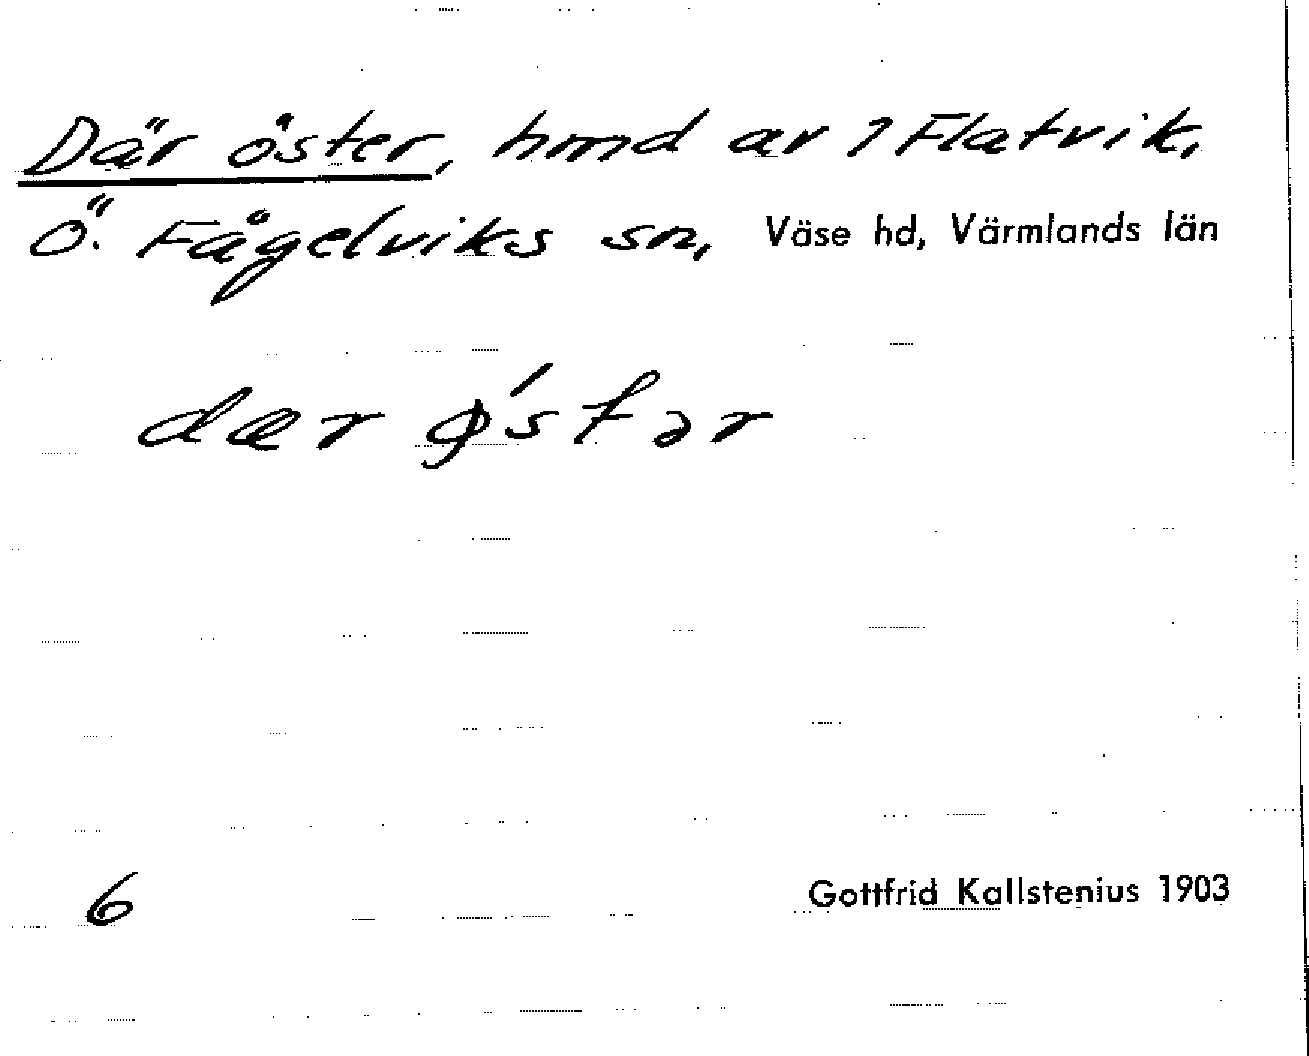 Där öster, hmd av 1 Flatvik,
Ö. Fågelviks sn, Väse hd, Värmlands län
dær ǿstər
6
Gottfrid Kallstenius 1903